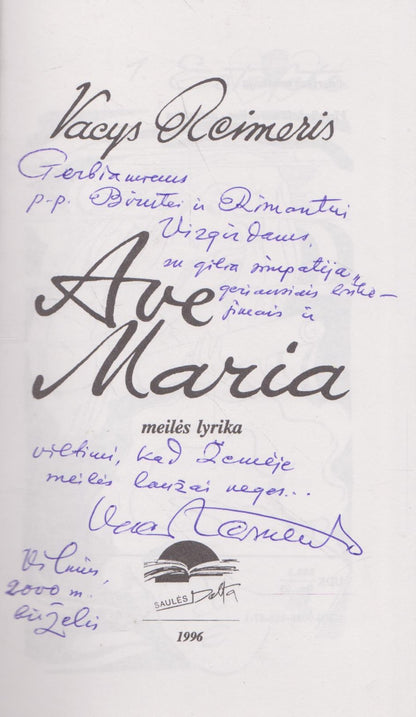 Vacys Reimeris
Gerbiamiems
p.p. Birutei ir Rimantui
Virgūdams,
su gilia simpatija,
geriausiais linkė-
jimais ir
Ave
Maria
meilės lyrika
viltimi, kad Žemėje
meilės laužai neges...
Vilnius,
2000 m.
birželis
SAULĖS Delta
1996